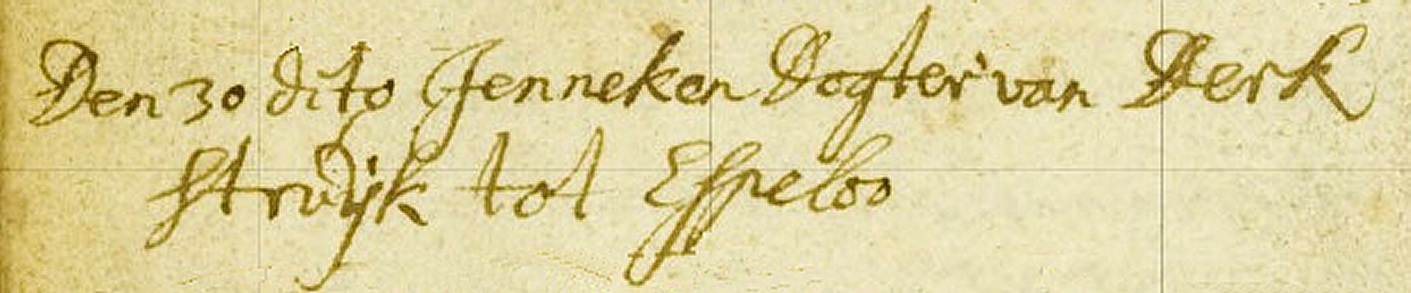 Den 30 dito Jenneken Dogter van Derk
Struijk tot Espeloo